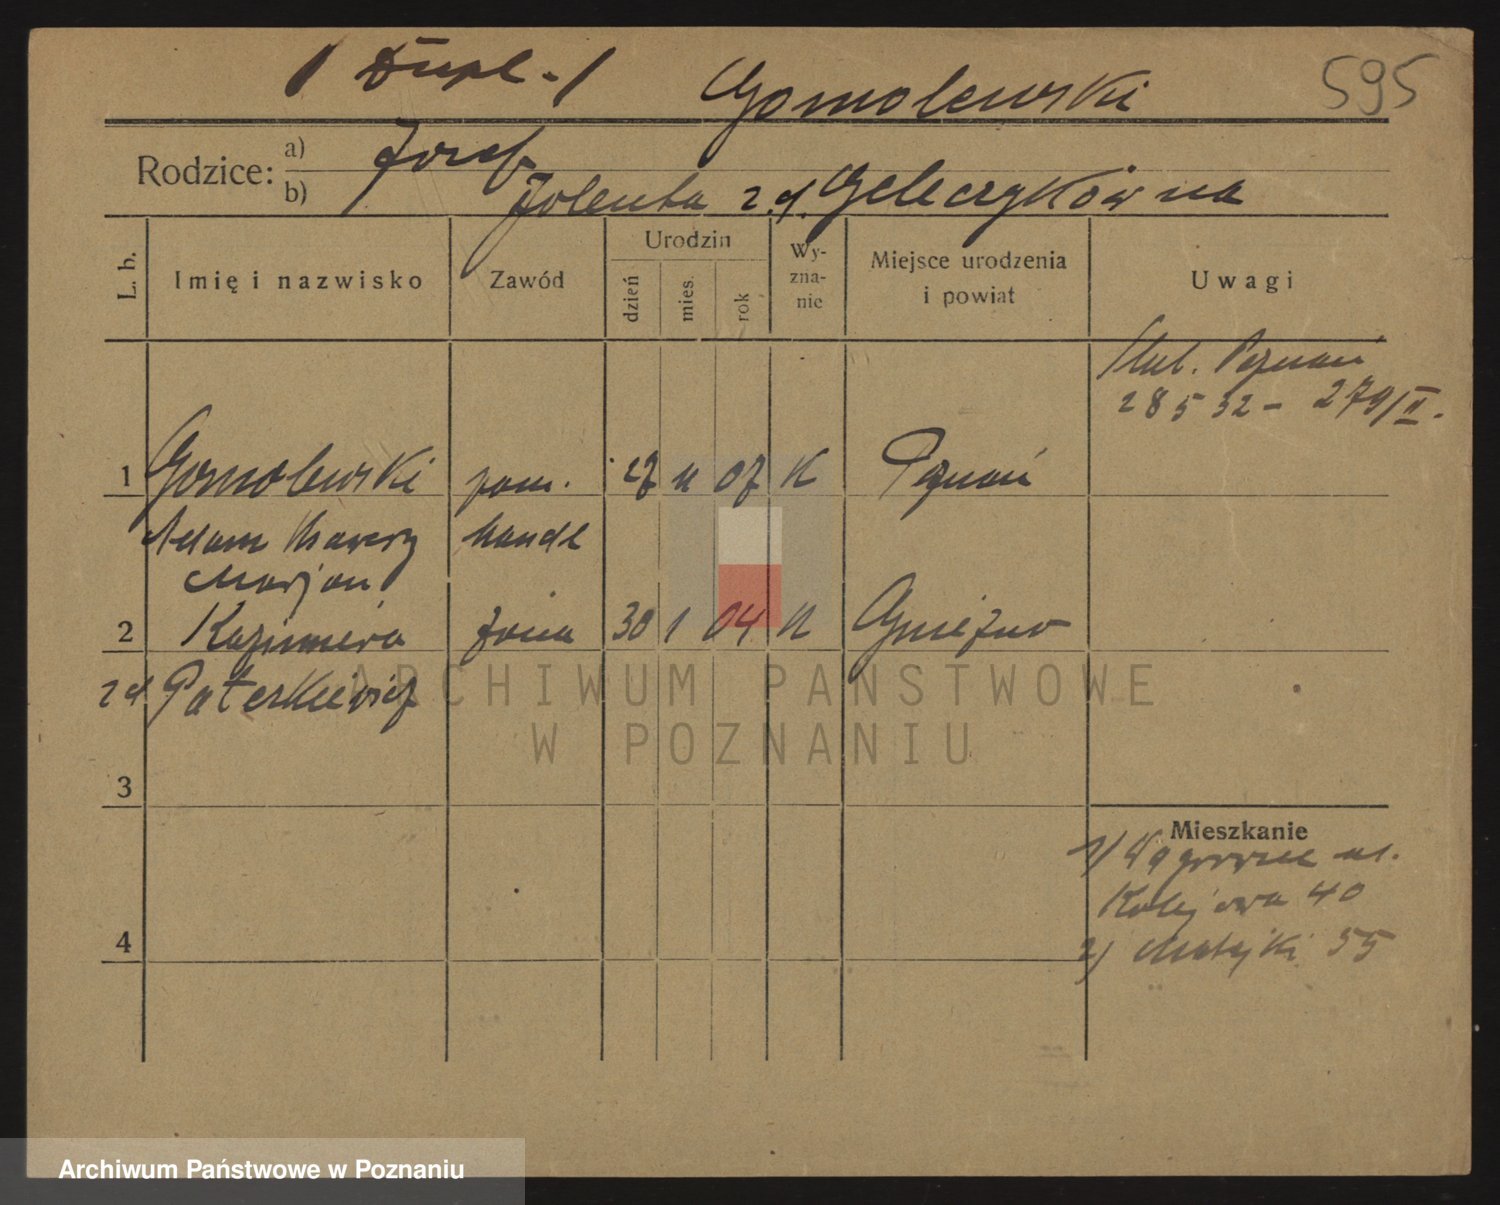 / Dupl. /
Gomolewski
595
Rodzice:
a) Józef
b) Jolenta z d. Geleczykówna
L. b.
Imię i nazwisko
Zawód
Urodzin
dzień
mies.
rok
Wy-
zna-
nie
Miejsce urodzenia
i powiat
Uwagi
Ślub. Poznań
28 5 32 - 279/II.
1 Gomolewski pom. 27 11 07 K Poznań
Adam Ksawery handl
Marjan
2 Kazimiera żona 30 1 04 K Gniezno
z d. Paterkiewicz
3
4
Mieszkanie
1/ Wągrowiec ul.
Kolejowa 40
2) Matejki 55
ARCHIWUM PAŃSTWOWE
W POZNANIU
Archiwum Państwowe w Poznaniu